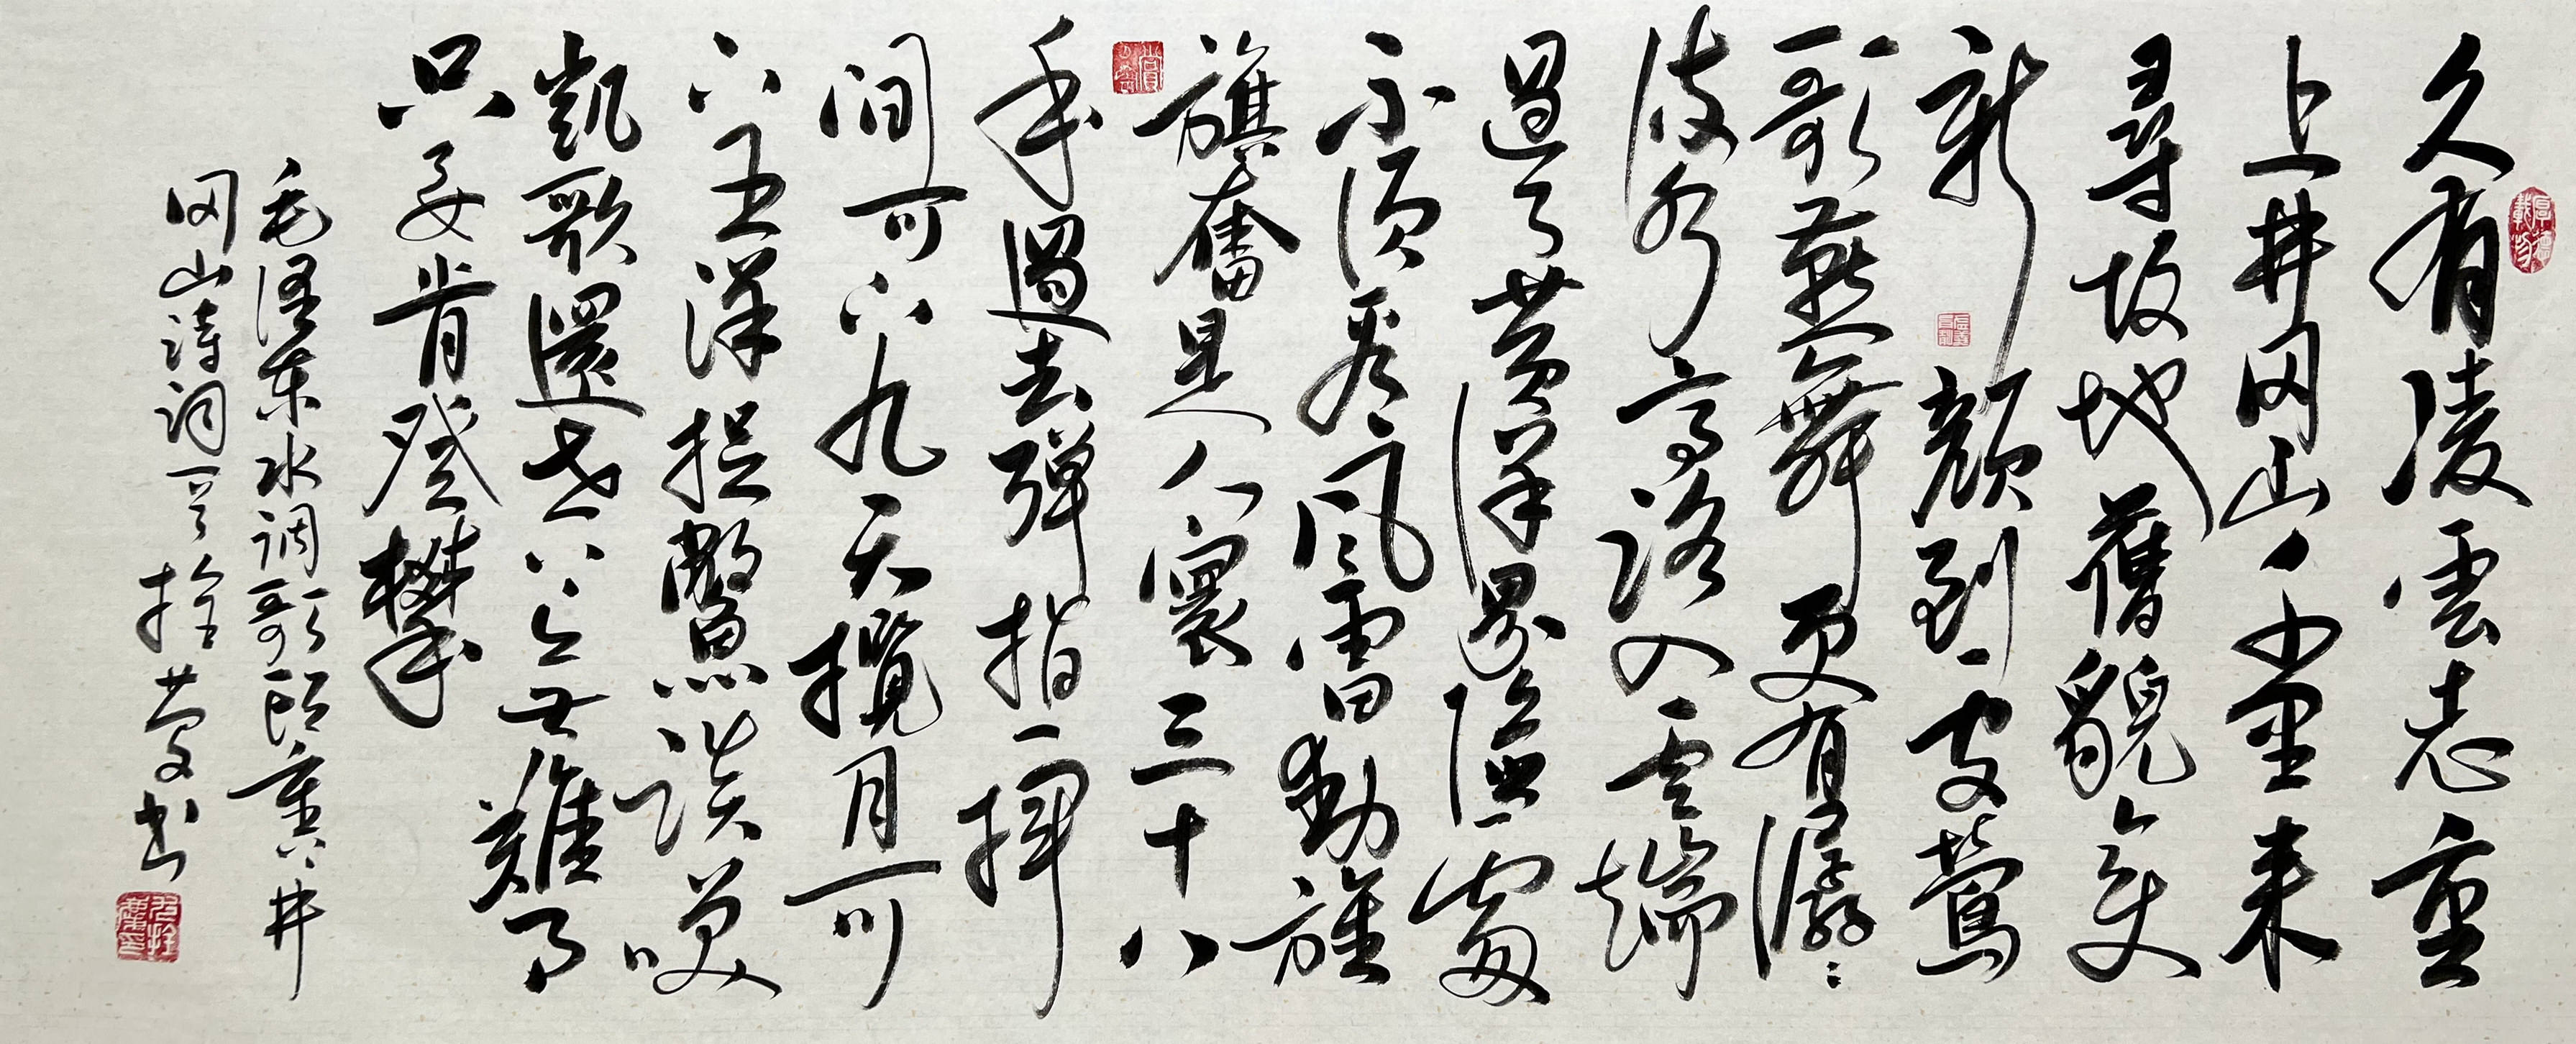 久有凌雲志重
上井冈山千里来
尋故地舊貌变
新顔到處鶯
歌燕舞更有潺潺
流水高路入雲端
過了黄洋界險處
不須看風雷動旌
旗奮是人寰三十八
年過去彈指一揮
间可上九天攬月可
下五洋捉鱉談笑
凱歌還世上無難事
只要肯登攀
毛澤東水調歌頭重上井
冈山詩詞一首拴慶书
厚德載物